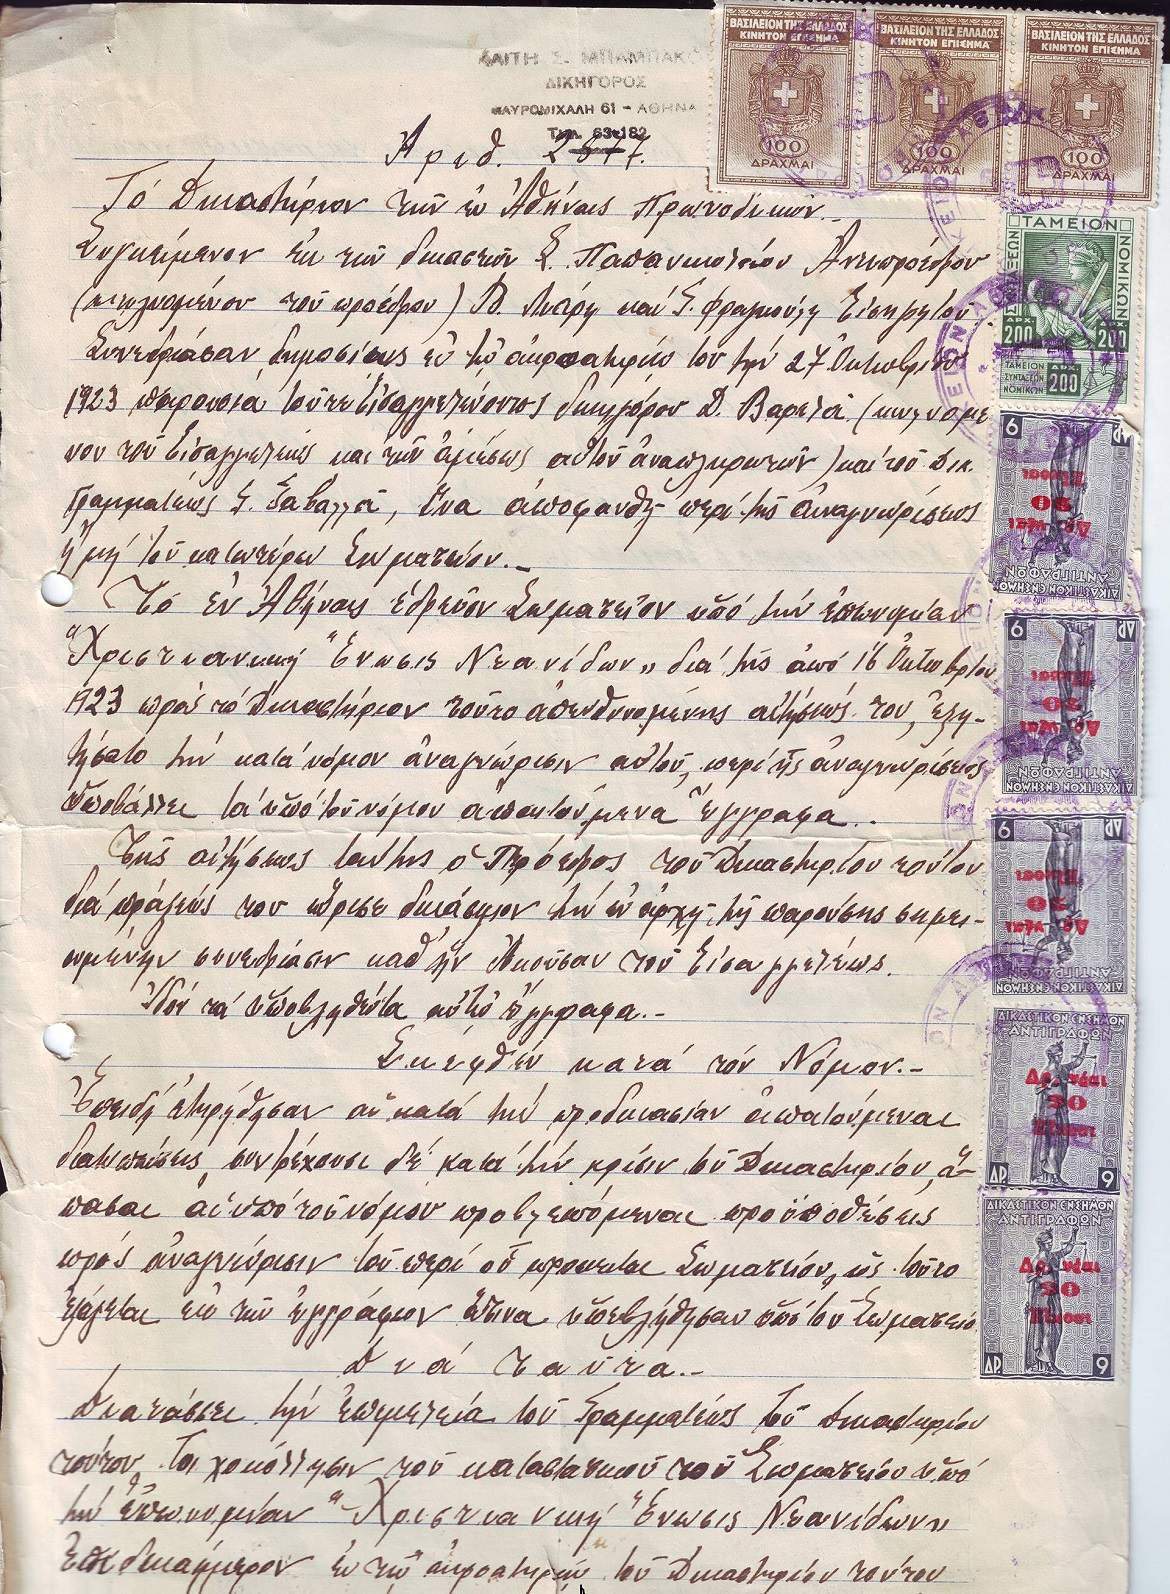 ΛΑΙΤΗ Σ. ΜΠΑΜΠΑΚΟ
ΔΙΚΗΓΟΡΟΣ
ΜΑΥΡΟΜΙΧΑΛΗ 61 - ΑΘΗΝΑ
Τηλ. 63.182
Ἀριθ. 2577.
Τό Δικαστήριον τῶν ἐν Ἀθήναις Πρωτοδικῶν.-
Συγκείμενον ἐκ τῶν δικαστῶν Σ. Παπανικολάου Ἀντιπροέδρου
(κωλυομένου τοῦ προέδρου) καί Γ. Φραγκούλη Εἰσηγητοῦ
Συνεδριάσαν δημοσίως ἐν τῷ ἀκροατηρίῳ του τήν 27 Ὀκτωβρίου
1923 παρουσίᾳ τοῦ τε Εἰσαγγελεύοντος δικηγόρου Δ. Βαρελᾶ (κωλυομέ
νου τοῦ Εἰσαγγελέως καί τῶν ἀμέσως αὐτοῦ ἀναπληρωτῶν) καί τοῦ Δικ.
Γραμματέως Γ. Σαβαλλᾶ, ἵνα ἀποφανθῇ περί τῆς ἀναγνωρίσεως
ἤ μή τοῦ κατωτέρω Σωματείου.-
Τό ἐν Ἀθήναις ἑδρεῦον Σωματεῖον ὑπό τήν ἐπωνυμίαν
"Χριστιανική Ἕνωσις Νεανίδων" διά τῆς ἀπό 16 Ὀκτωβρίου
1923 πρός τό Δικαστήριον τοῦτο ἀπευθυνομένης αἰτήσεώς του, ἐζη-
τήσατο τήν κατά νόμον ἀναγνώρισιν αὐτοῦ, περί τῆς ἀναγνωρίσεως
ὑποβάλλει τά ὑπό τοῦ νόμου ἀπαιτούμενα ἔγγραφα.-
Τῆς αἰτήσεως ταύτης ὁ Πρόεδρος τοῦ Δικαστηρίου τούτου
διά πράξεώς του ὥρισε δικάσιμον τήν ἐν ἀρχῇ τῆς παρούσης σημει-
ωμένην συνεδρίασιν καθ' ἥν Ἀκοῦσαν τοῦ Εἰσαγγελέως.
Ἰδόν τά ὑποβληθέντα αὐτῷ ἔγγραφα.-
Σκεφθέν κατά τόν Νόμον.-
Ἐπειδή ἐτηρήθησαν αἱ κατά τήν προδικασίαν ἀπαιτούμεναι
διατυπώσεις, συντρέχουσι δέ κατά τήν κρίσιν τοῦ Δικαστηρίου, ἅ-
πασαι αἱ ὑπό τοῦ νόμου προβλεπόμεναι προϋποθέσεις
πρός ἀναγνώρισιν τοῦ περί οὗ πρόκειται Σωματείου, ὡς τοῦτο
ἐξάγεται ἐκ τῶν ἐγγράφων ἅτινα ὑπεβλήθησαν ὑπό τοῦ Σωματείου
Διά ταῦτα.-
Διατάσσει τήν ἐπιμελείᾳ τοῦ Γραμματέως τοῦ Δικαστηρίου
τούτου τοιχοκόλλησιν τοῦ καταστατικοῦ τοῦ Σωματείου ὑπό
τήν ἐπωνυμίαν "Χριστιανική Ἕνωσις Νεανίδων"
ἐπί δεκαήμερον ἐν τῷ ἀκροατηρίῳ τοῦ Δικαστηρίου τούτου
ΒΑΣΙΛΕΙΟΝ ΤΗΣ ΕΛΛΑΔΟΣ
ΚΙΝΗΤΟΝ ΕΠΙΣΗΜΑ
100
ΔΡΑΧΜΑΙ
ΒΑΣΙΛΕΙΟΝ ΤΗΣ ΕΛΛΑΔΟΣ
ΚΙΝΗΤΟΝ ΕΠΙΣΗΜΑ
100
ΔΡΑΧΜΑΙ
ΒΑΣΙΛΕΙΟΝ ΤΗΣ ΕΛΛΑΔΟΣ
ΚΙΝΗΤΟΝ ΕΠΙΣΗΜΑ
100
ΔΡΑΧΜΑΙ
ΤΑΜΕΙΟΝ
ΝΟΜΙΚΩΝ
ΔΡΧ. 200
ΔΡΧ. 200
ΤΑΜΕΙΟΝ
ΣΥΝΤΑΞΕΩΝ
ΝΟΜΙΚΩΝ
ΔΡΧ. 200
ΔΙΚΑΣΤΙΚΟΝ ΕΝΣΗΜΟΝ
ΑΝΤΙΓΡΑΦΩΝ
Δραχμαι
20
Εικοσι
ΔΡ. 9
ΔΙΚΑΣΤΙΚΟΝ ΕΝΣΗΜΟΝ
ΑΝΤΙΓΡΑΦΩΝ
Δραχμαι
20
Εικοσι
ΔΡ. 9
ΔΙΚΑΣΤΙΚΟΝ ΕΝΣΗΜΟΝ
ΑΝΤΙΓΡΑΦΩΝ
Δραχμαι
20
Εικοσι
ΔΡ. 9
ΔΙΚΑΣΤΙΚΟΝ ΕΝΣΗΜΟΝ
ΑΝΤΙΓΡΑΦΩΝ
Δραχμαι
20
Εικοσι
ΔΡ. 9
ΔΙΚΑΣΤΙΚΟΝ ΕΝΣΗΜΟΝ
ΑΝΤΙΓΡΑΦΩΝ
Δραχμαι
20
Εικοσι
ΔΡ. 9